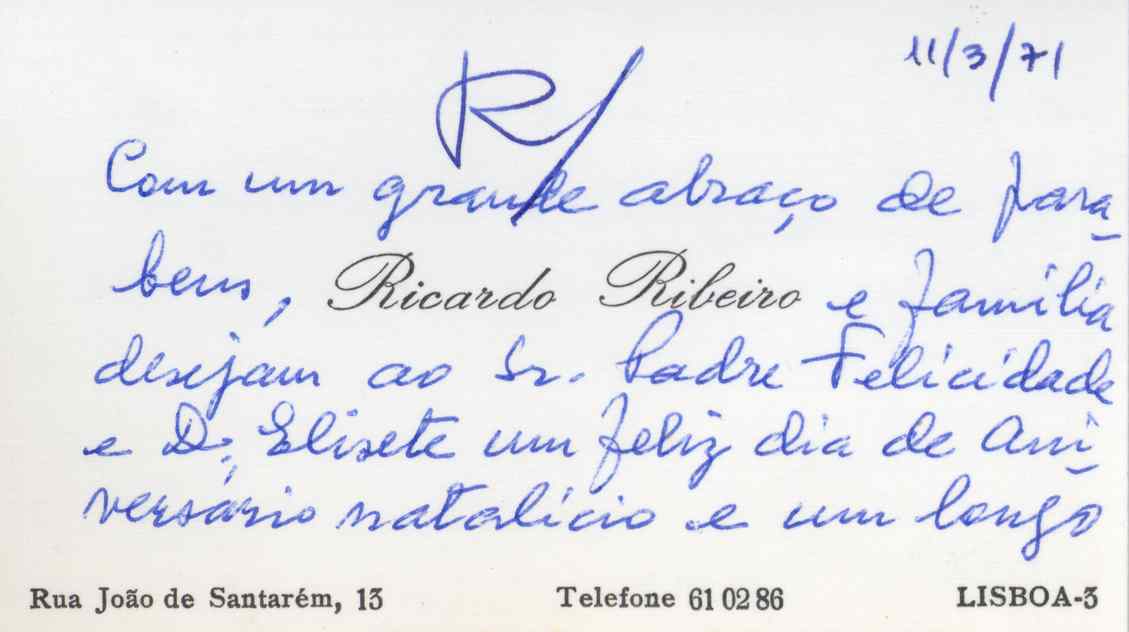 11/3/71
R/
Com um grande abraço de para-
bens, Ricardo Ribeiro e família
desejam ao Sr. Padre Felicidade
e D. Elisete um feliz dia de Ani-
versário natalício e um longo
Rua João de Santarém, 13 Telefone 61 02 86 LISBOA-3